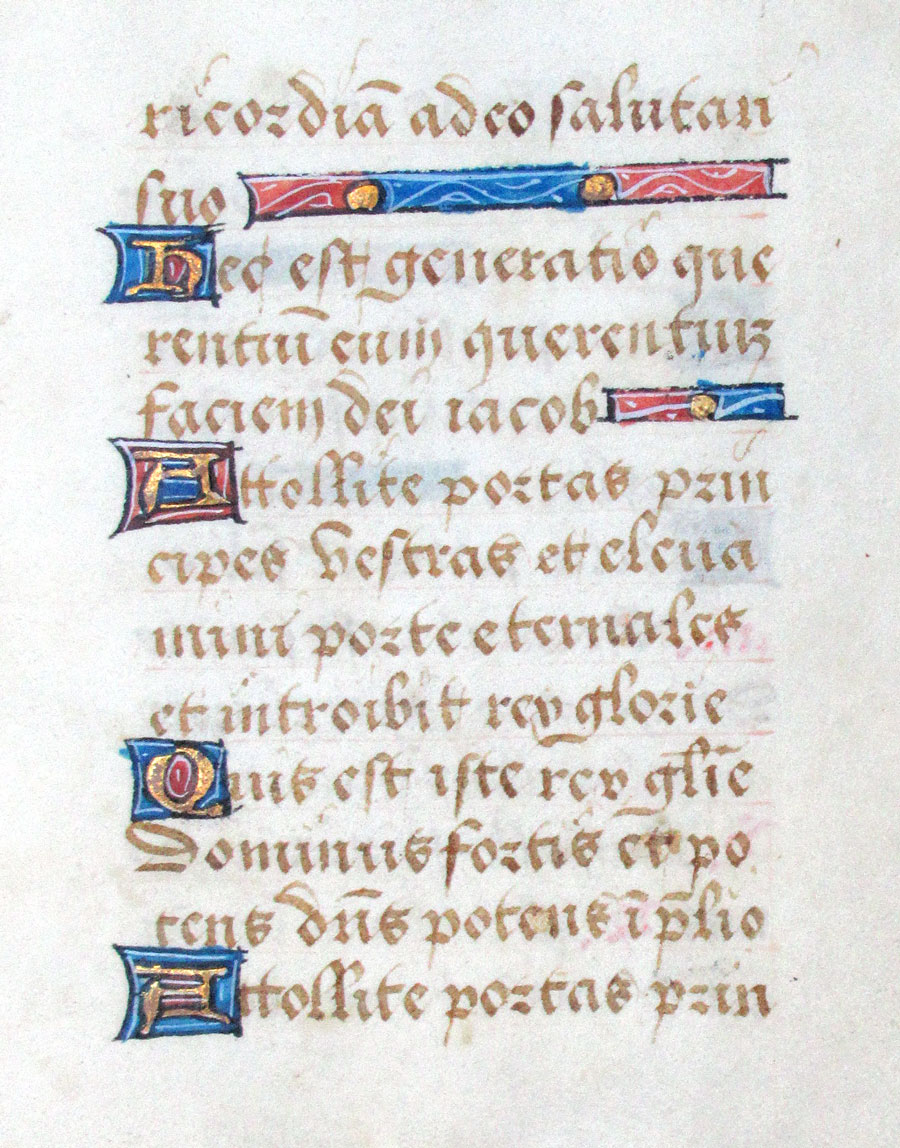 ricordiā adeo salutari
suo
Hec est generatiō que
rentiū eum querentium
faciem dei iacob
Attollite portas prin
cipes vestras et eleua
mini porte eternales
et introibit rex glorie
Quis est iste rex glīe
Dominus fortis et po
tens dn̄s potens ī p̄lio
Attollite portas prin